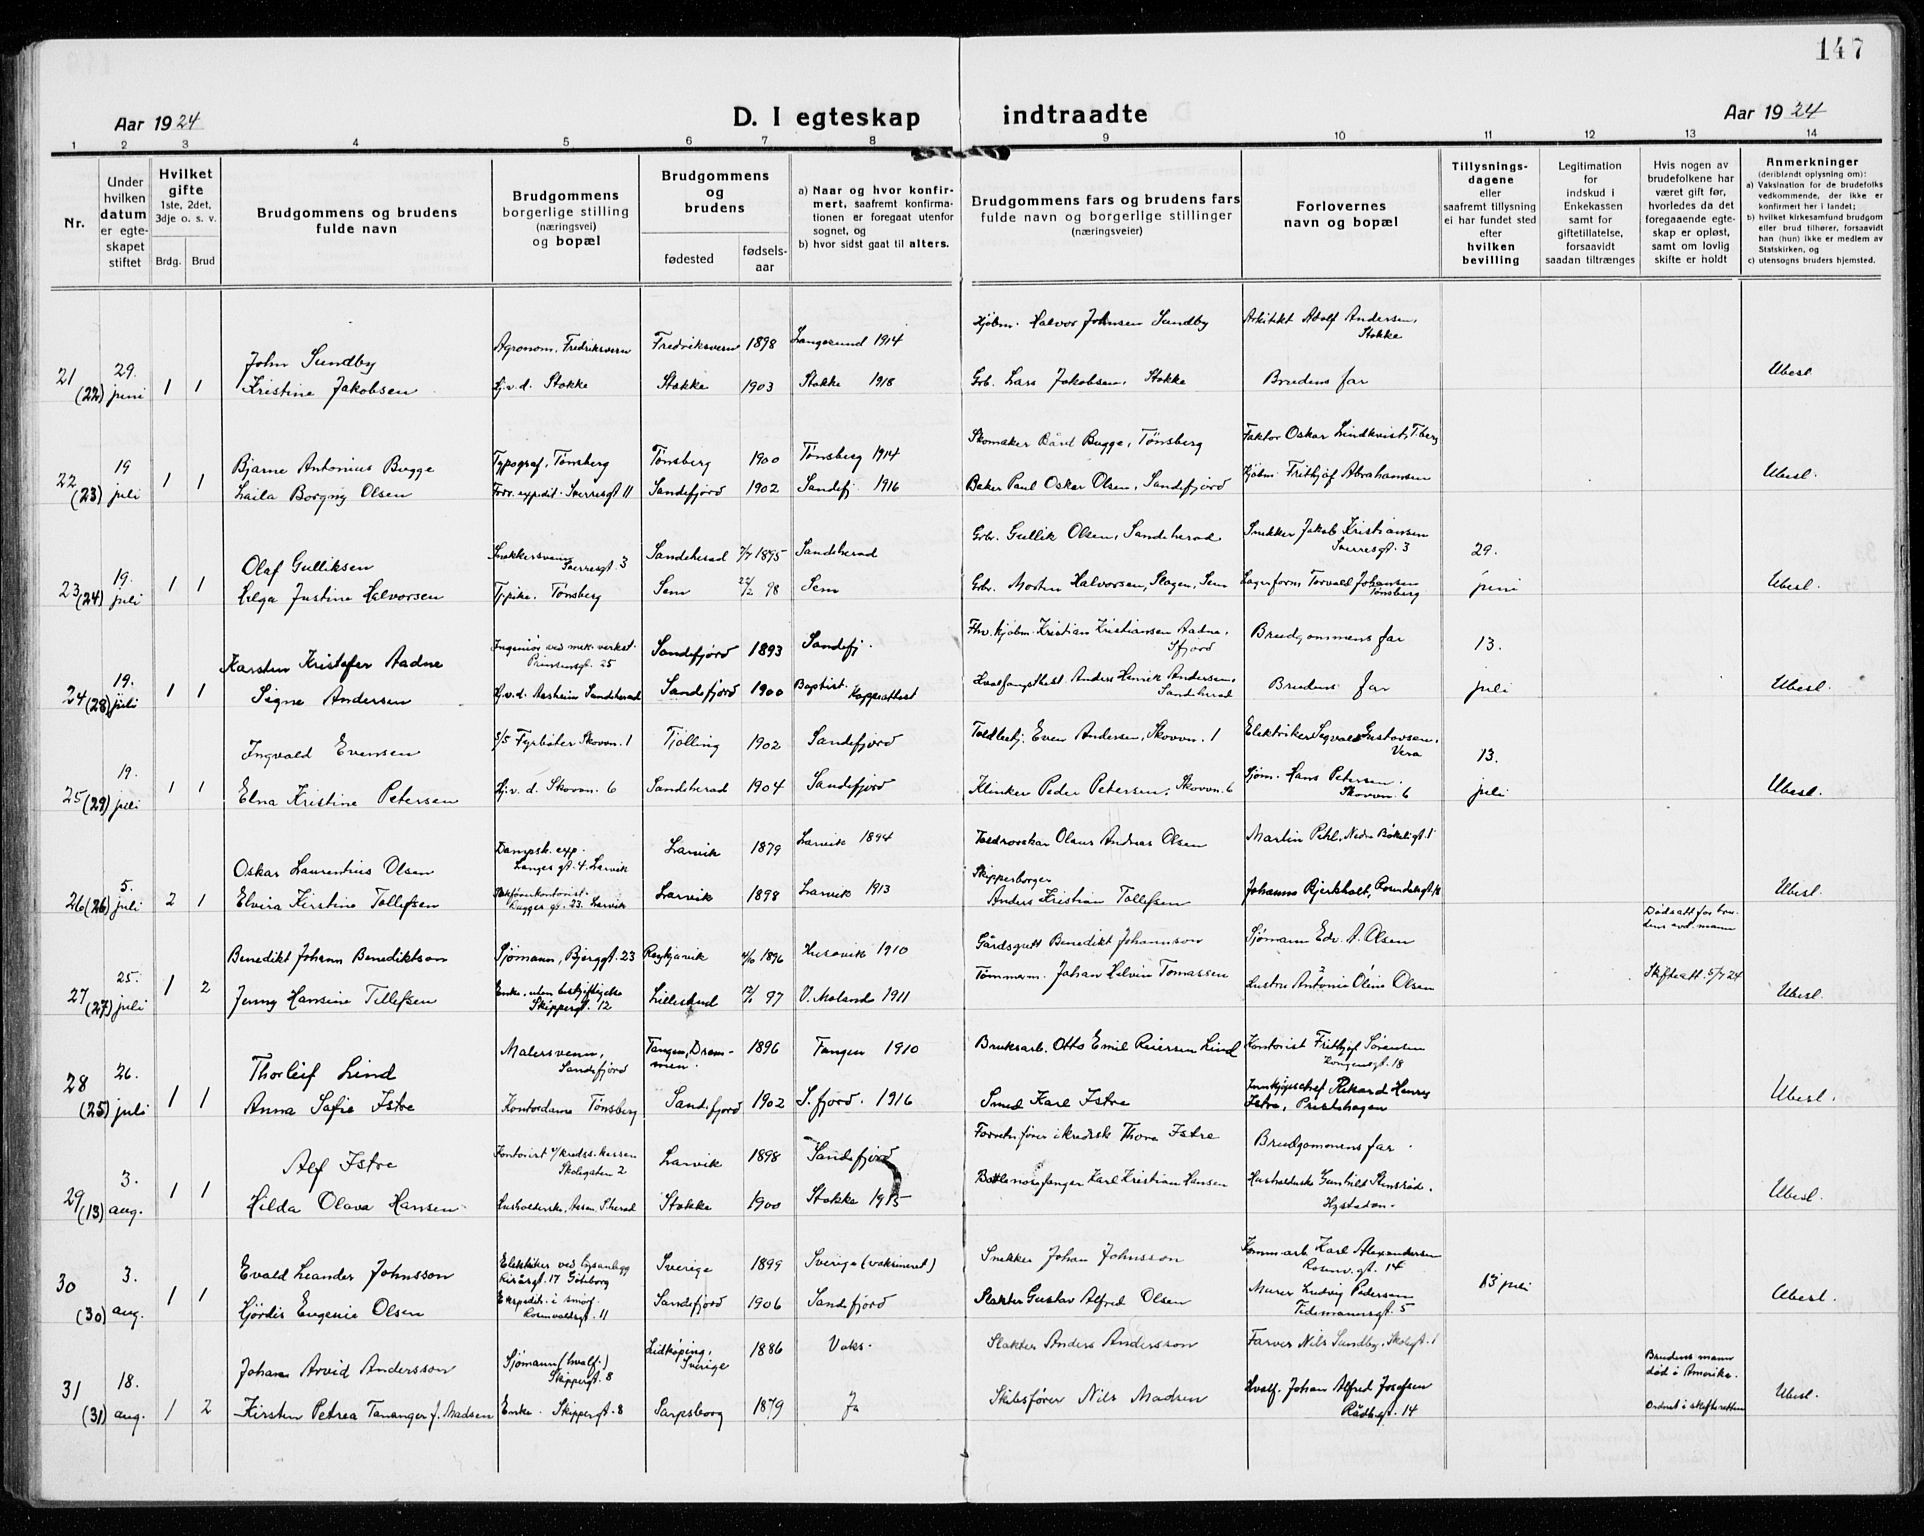 147
Aar 1924
D. I egteskap indtraadte
Aar 1924
1 2 3 4 5 6 7 8 9 10 11 12 13 14
Nr.
Under hvilken datum er egteskapet stiftet
Hvilket gifte 1ste, 2det, 3dje o. s. v.
Brdg. Brud
Brudgommens og brudens fulde navn
Brudgommens borgerlige stilling (næringsvei) og bopæl
Brudgommens og brudens
fødested
fødselsaar
a) Naar og hvor konfirmert, saafremt konfirmationen er foregaat utenfor sognet, og
b) hvor sidst gaat til alters.
Brudgommens fars og brudens fars fulde navn og borgerlige stillinger (næringsveier)
Forlovernes navn og bopæl
Tillysningsdagene eller saafremt tillysning ei har fundet sted efter hvilken bevilling
Legitimation for indskud i Enkekassen samt for giftetillatelse, forsaavidt saadan tiltrænges
Hvis nogen av brudefolkene har været gift før, hvorledes da det foregaaende egteskap er opløst, samt om lovlig skifte er holdt
Anmerkninger (deriblandt oplysning om):
a) Vaksination for de brudefolks vedkommende, der ikke er konfirmert her i landet;
b) hvilket kirkesamfund brudgom eller brud tilhører, forsaavidt han (hun) ikke er medlem av Statskirken, og
c) utensogns bruders hjemsted.
21 (22) 29. juni 1 1
John Sundby Agronom, Fredriksvern Fredriksvern 1898 Langesund 1914 Kjøbm. Halvor Johnsen Sundby Arkitekt Adolf Andersen, Stokke
Kristine Jakobsen Hj.v.d. Stokke Stokke 1903 Stokke 1918 Grb. Lars Jakobsen, Stokke Brudens far Ubesl.
22 (23) 19 juli 1 1
Bjarne Antonius Bugge Typograf, Tønsberg Tønsberg 1900 Tønsberg 1914 Skomaker Bård Bugge, Tønsberg Faktor Oskar Lindkvist, T.berg
Laila Borgny Olsen Forr. expedit. Sverresgt 11 Sandefjord 1902 Sandefj. 1916 Baker Paul Oskar Olsen, Sandefjord Kjøbm. Frithjof Abrahamsen Ubesl.
23 (24) 19. juli 1 1
Olaf Gulliksen Snekkersvenn Sverresgt. 3 Sandeherad 7/7 1895 Sandeherad Grb. Gullik Olsen, Sandeherad Snekker Jakob Kristiansen Sverresgt. 3 29. juni
Helga Justine Halvorsen Tønsberg Sem 22/2 98 Sem Grb. Morten Halvorsen, Slagen, Sem Lagerform Torvald Johansen Tønsberg Ubesl.
24 (28) 19. juli 1 1
Karsten Kristofer Aadne Ingeniør ved mek. verkst. Prinsensgt. 25 Sandefjord 1893 Sandefj. Fhv. kjøbm. Kristian Kristiansen Aadne, Sfjord Brudgommens far 13. juli
Signe Andersen Hj.v.d. Aasheim Sandeherad Sandefjord 1900 Baptist. Koppeattest Hvalfangstbest. Anders Henrik Andersen, Sandeherad Brudens far Ubesl.
25 (29) 19. juli 1 1
Ingvald Evensen Fyrbøter Skovvn. 1 Tjølling 1902 Sandefjord Toldbetj. Even Andersen, Skovvn. 1 Elektriker Segvald Gustavsen, Vera 13. juli
Elna Kristine Petersen Hj.v.d. Skovvn. 6 Sandeherad 1904 Sandefjord Klinker Peder Petersen, Skovvn. 6 Sjøm. Hans Petersen. Skovvn. 6 Ubesl.
26 (26) 5. juli 2 1
Oskar Laurentius Olsen Dampsk. exp. Langes gt. 4. Larvik Larvik 1879 Larvik 1894 Olaus Andreas Olsen Martin Pehl, Nedre Bøkeligt. 1
Elvira Kirstine Tollefsen Larvik Larvik 1898 Larvik 1913 Skipperborger Anders Kristian Tollefsen Johannes Bjerkholt Ubesl.
27 (27) 25. juli 1 2
Benedikt Johann Benediktson Sjømann, Bjerggt. 23 Reykjavik 1896 Husavik 1910 Gårdsgutt Benedikt Johannson Sjømann Edv. A. Olsen Dødsatt for brudens avd. mann
Jenny Hansine Tellefsen Enke, uten beskjeftigelse Skippergt. 12 Lillesand 97 V. Moland 1911 Tømmerm. Johan Helvin Tomassen Antonie Oline Olsen Skifteatt. 5/7 24 Ubesl.
28 (25) 26. juli 1 1
Thorleif Lind Malersvenn, Sandefjord Tangen, Drammen. 1896 Tangen 1910 Bruksarb. Otto Emil Reiersen Lind Kontorist Frithjof Sørensen Kongensgt. 18
Anna Sofie Istre Kontordame Tønsberg Sandefjord 1902 S.fjord. 1916 Smed Karl Istre Innkjøpschef Rikard Henry Istre, Prestehagen Ubesl.
29 (13) 3. aug. 1 1
Alf Istre Kontorist v/ kredss. kassen Skolegaten 2 Larvik 1898 Sandefjord Thora Istre Brudgommens far
Hilda Olava Hansen Husholderske, Aasen, S.herad Stokke 1900 Stokke 1915 Bottlenosefanger Karl Kristian Hansen Husholderske Gunhild Stensrød. Hystadvn. Ubesl.
30 (30) 3. aug. 1 1
Evald Leander Johnsson Elektriker ved lysanlegg 17 Göteborg Sverige 1899 Sverige (vaksineret) Snekker Johan Johnsson Komm arb. Karl Alexandersen Rosenv. gt. 14 13 juli
Hjørdis Eugenie Olsen Ekspedit. i smørf. Rosenvoldsgt. 11 Sandefjord 1906 Sandefjord Slakter Gustav Alfred Olsen Murer Ludvig Pedersen Tidemannsgt. 5 Ubesl.
31 (31) 18. aug. 1 2
Johan Arvid Andersson Sjømann (hvalf.) Skippergt. 8 Lidköping, Sverige 1886 Vaks. Slakter Anders Andersson Farver Nils Sundby, Skolegt. 1 Brudens mann død i Amerika.
Kirsten Petrea Tananger f. Madsen Enke. Skippergt. 8 Sarpsborg 1879 Ja Skibsfører Nils Madsen Hvalf. Johan Alfred Josefsen Rådhusgt. 14 Ordnet i skifteretten Ubesl.